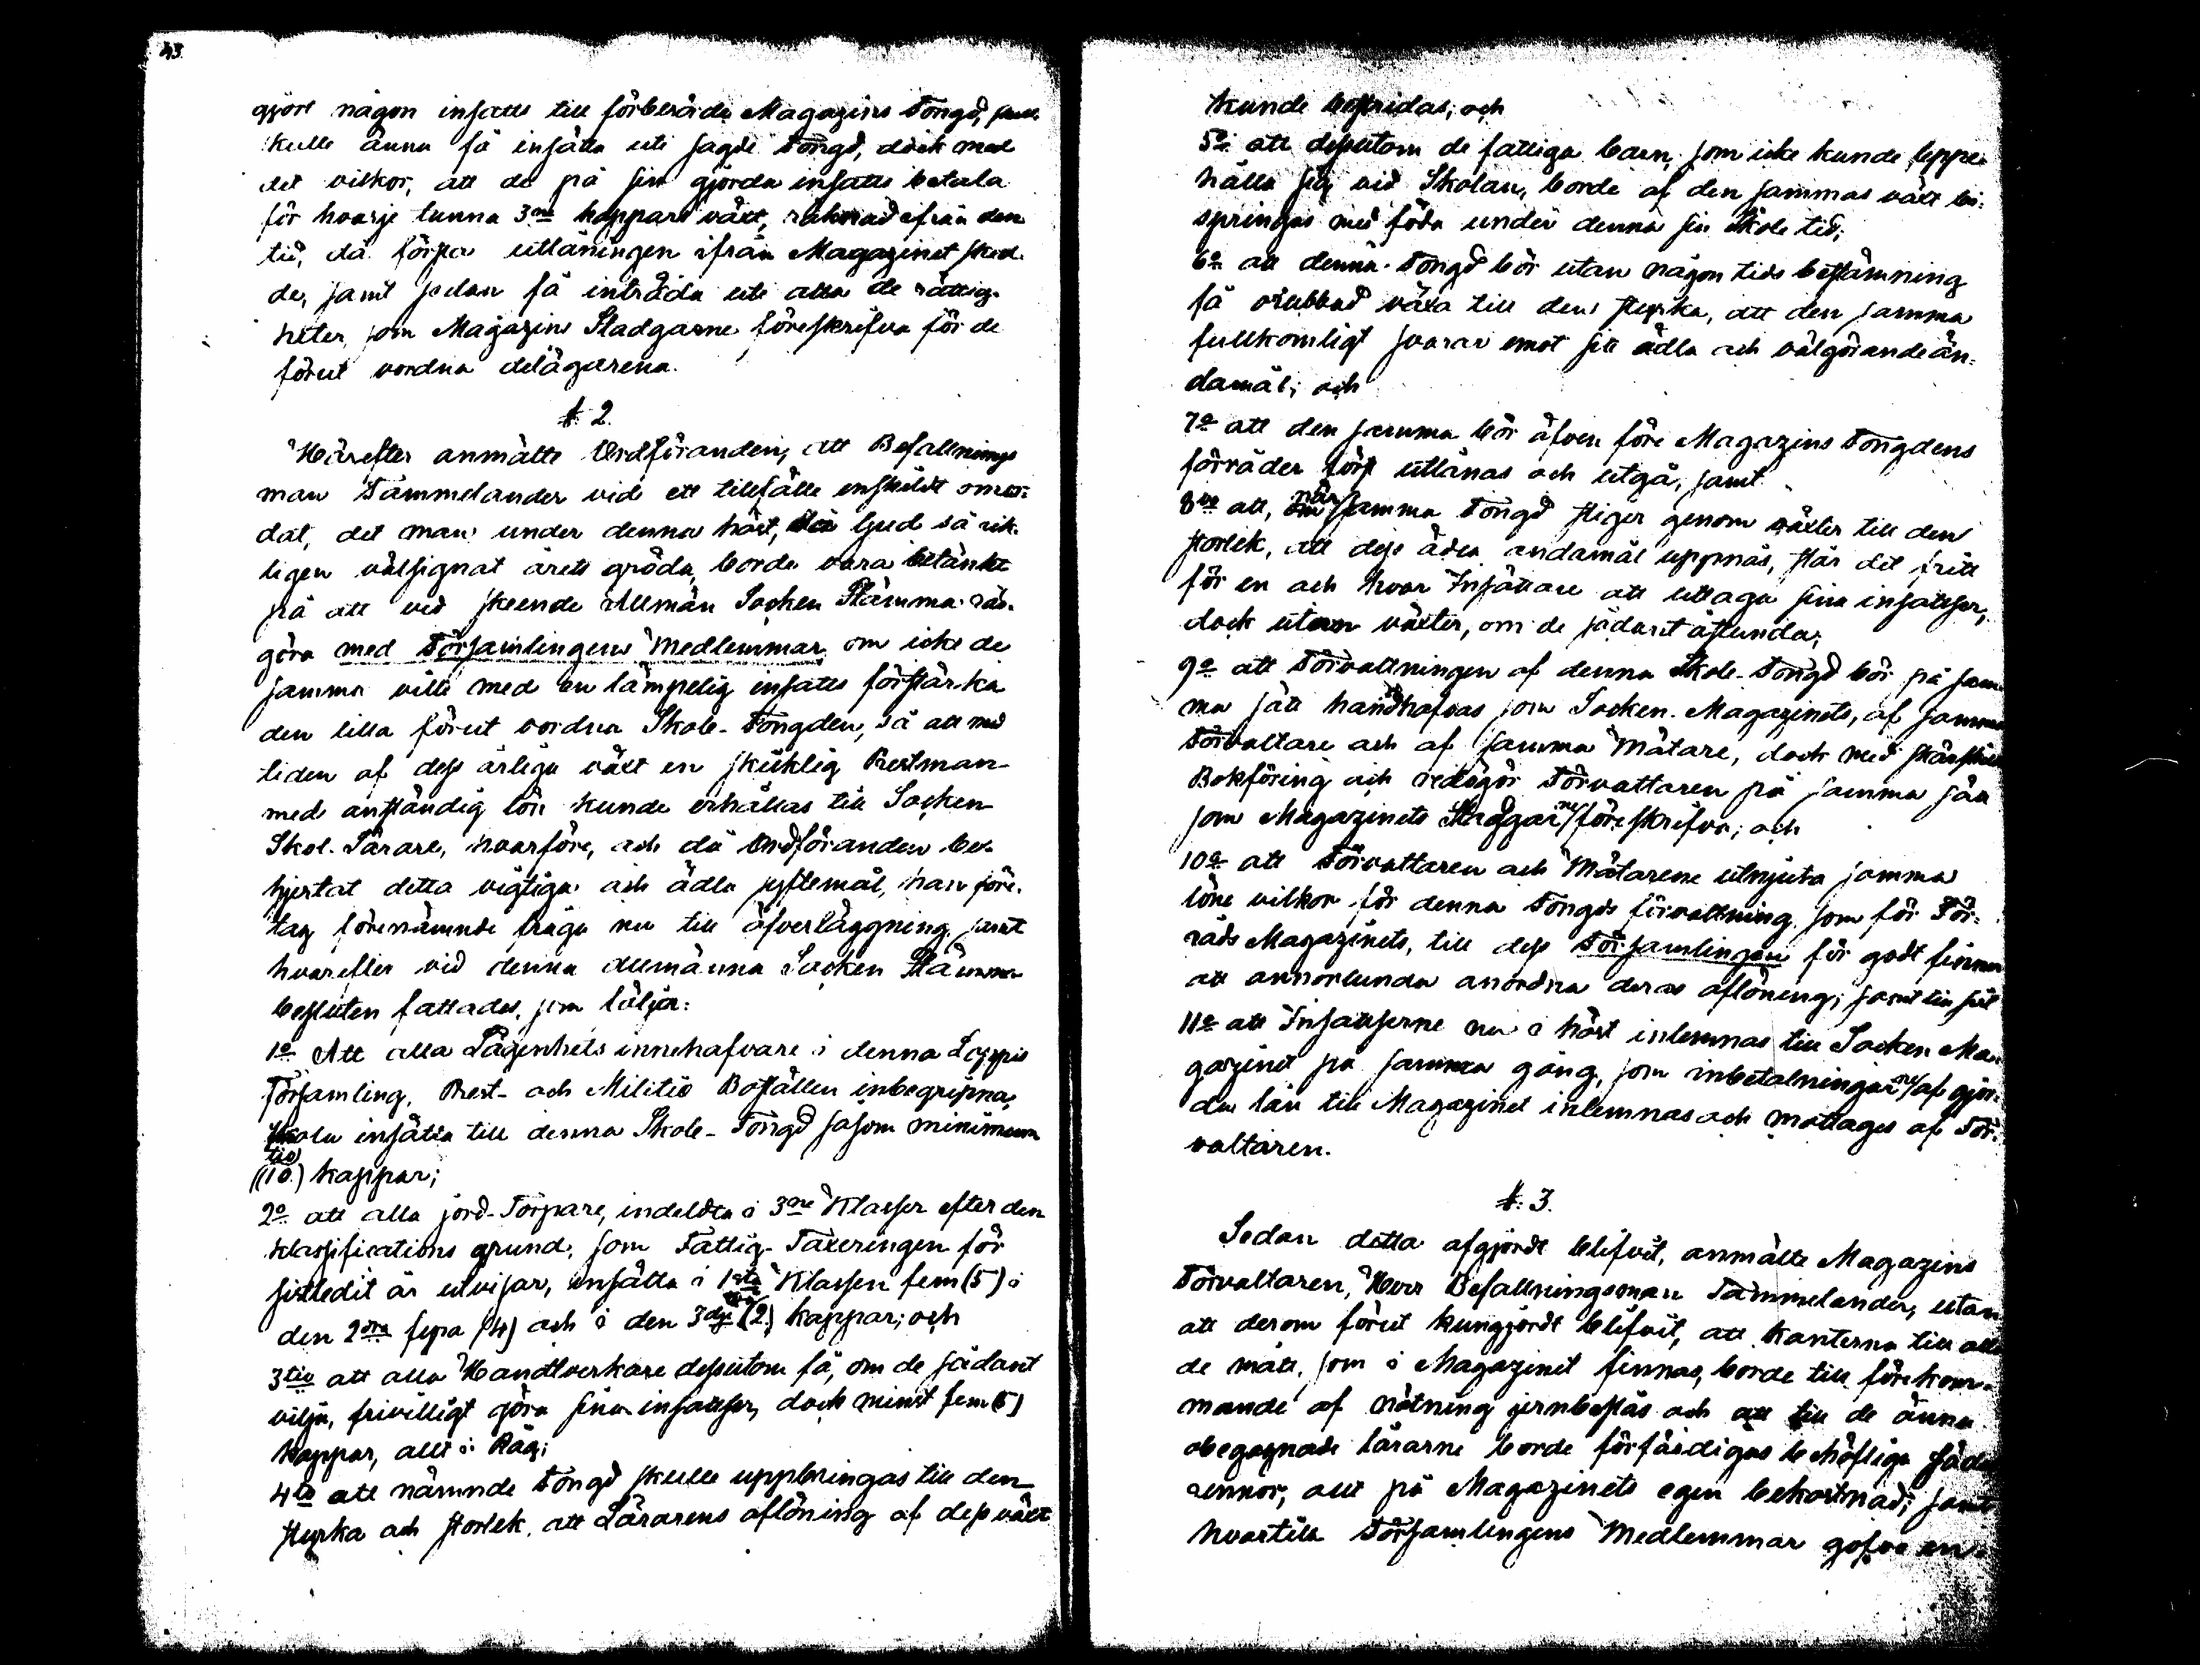 43.
gjort någon insatts till förberörde Magazins Fongd, samt
skulle ännu få insätta uti sagde Fongd, dock med
det vilkor, att de på sin gjorda insatts betala
för hvarje tunna 3ne kappars växt, räknad ifrån den
tid, då första utlåningen ifrån Magazinet sked-
de, samt sedan få inträda uti alla de rättig-
heter, som Magazins Stadgarne föreskrifva för de
förut vordna delägarena.
§. 2.
Härefter anmälte Ordföranden, att Befallnings
man Tammelander vid ett tillfälle enskildt omor-
dat, det man under denna höst, då Gud så rik-
ligen välsignat årets gröda, borde vara betänkt
på att vid skeende Allmän Socken Stämma råd-
göra med Församlingens Medlemmar om icke de
samma ville med en lämpelig insatts förstärka
den lilla förut vordna Skole-Fongden, så att med
tiden af dess årliga växt en skicklig Prestman
med anständig lön kunde erhållas till Socken
Skol-Lärare, hvarföre, och då Ordföranden be-
hjertat detta vigtiga och ädla syftemål, han före-
tag förenämnde fråga nu till öfverläggning, samt
hvarefter vid denna allmänna Socken Stämma
besluten fattades, som följer:
1o Att alla Lägenhets innehafvare i denna Loppis
Församling, Prest- och Militie Boställen inbegripna,
skola insätta till denna Skole-Fongd såsom minimum
tio
(10.) kappar;
2o att alla jord-Torpare, indeldta i 3ne Klasser efter den
klassifications grund, som Fattig-Taxeringen för
sistledit år utvisar, insätta i 1sta Klassen fem (5) i
den 2dra fyra (4) och i den 3dje två (2.) kappar; och
3tio att alla Handtverkare dessutom få, om de sådant
vilja, frivilligt göra sina insattser, dock minst fem (5)
kappar, allt i Råg;
4to att nämnde Fongd skulle uppbringas till den
styrka och storlek, att Lärarens aflöning af dess växt
kunde bestridas; och
5o att dessutom de fattiga barn, som icke kunde uppe-
hålla sig vid Skolan, borde af den sammas växt bi-
springas med föda under denna sin Skole tid;
6o att denna Fongd bör utan någon tids bestämning
få orubbad växa till den styrka, att den samma
fullkomligt svarar emot sitt ädla och välgörande än-
damål; och
7o att den samma bör äfven före Magazins Fongdens
förråder först utlånas och utgå, samt
8vo att, när samma Fongd stiger genom växter till den
storlek, att dess ädla andamål uppnås, står det fritt
för en och hvar Insättare att uttaga sina insattser,
dock utan växter, om de sådant åstunda;
9o att Förvaltningen af denna Skole-Fongd bör på sam-
ma sätt handhafvas som Socken-Magazinets, af samma
Förvaltare och af samma Mätare, dock med särskild
Bokföring och redogör Förvaltaren på samma sätt
som Magazinets Stadgar ne föreskrifva; och
10o att Förvaltaren och Mätarene utnjuta samma
löne vilkor för denna Fongds förvaltning, som för För-
råds Magazinets, till dess Församlingen för godt finner
att annorlunda anordna deras aflöning; samt till sist
11o att Insattserne nu i höst inlemnas till Socken Ma-
gazinet på samma gång, som inbetalningar ne af gjor-
da lån till Magazinet inlemnas och mottages af För-
valtaren.
§. 3.
Sedan detta afgjordt blifvit, anmälte Magazins
Förvaltaren, Herr Befallningsman Tammelander, utan
att derom förut kungjordt blifvit, att kanterna till alla
de mått, som i Magazinet finnas, borde till förekom-
mande af nötning jernbeslås och att till de ännu
obegagnade lårarne borde förfärdigas behöfliga säde
rennor, allt på Magazinets egen bekostnad; samt
hvartill Församlingens Medlemmar gofvo en-